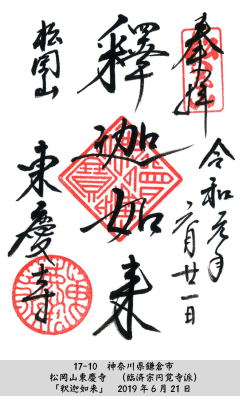 奉拝
令和元年
六月廿一日
釋迦如来
松岡山
東慶寺
17-10 神奈川県鎌倉市
松岡山東慶寺 (臨済宗円覚寺派)
「釈迦如来」 2019年6月21日